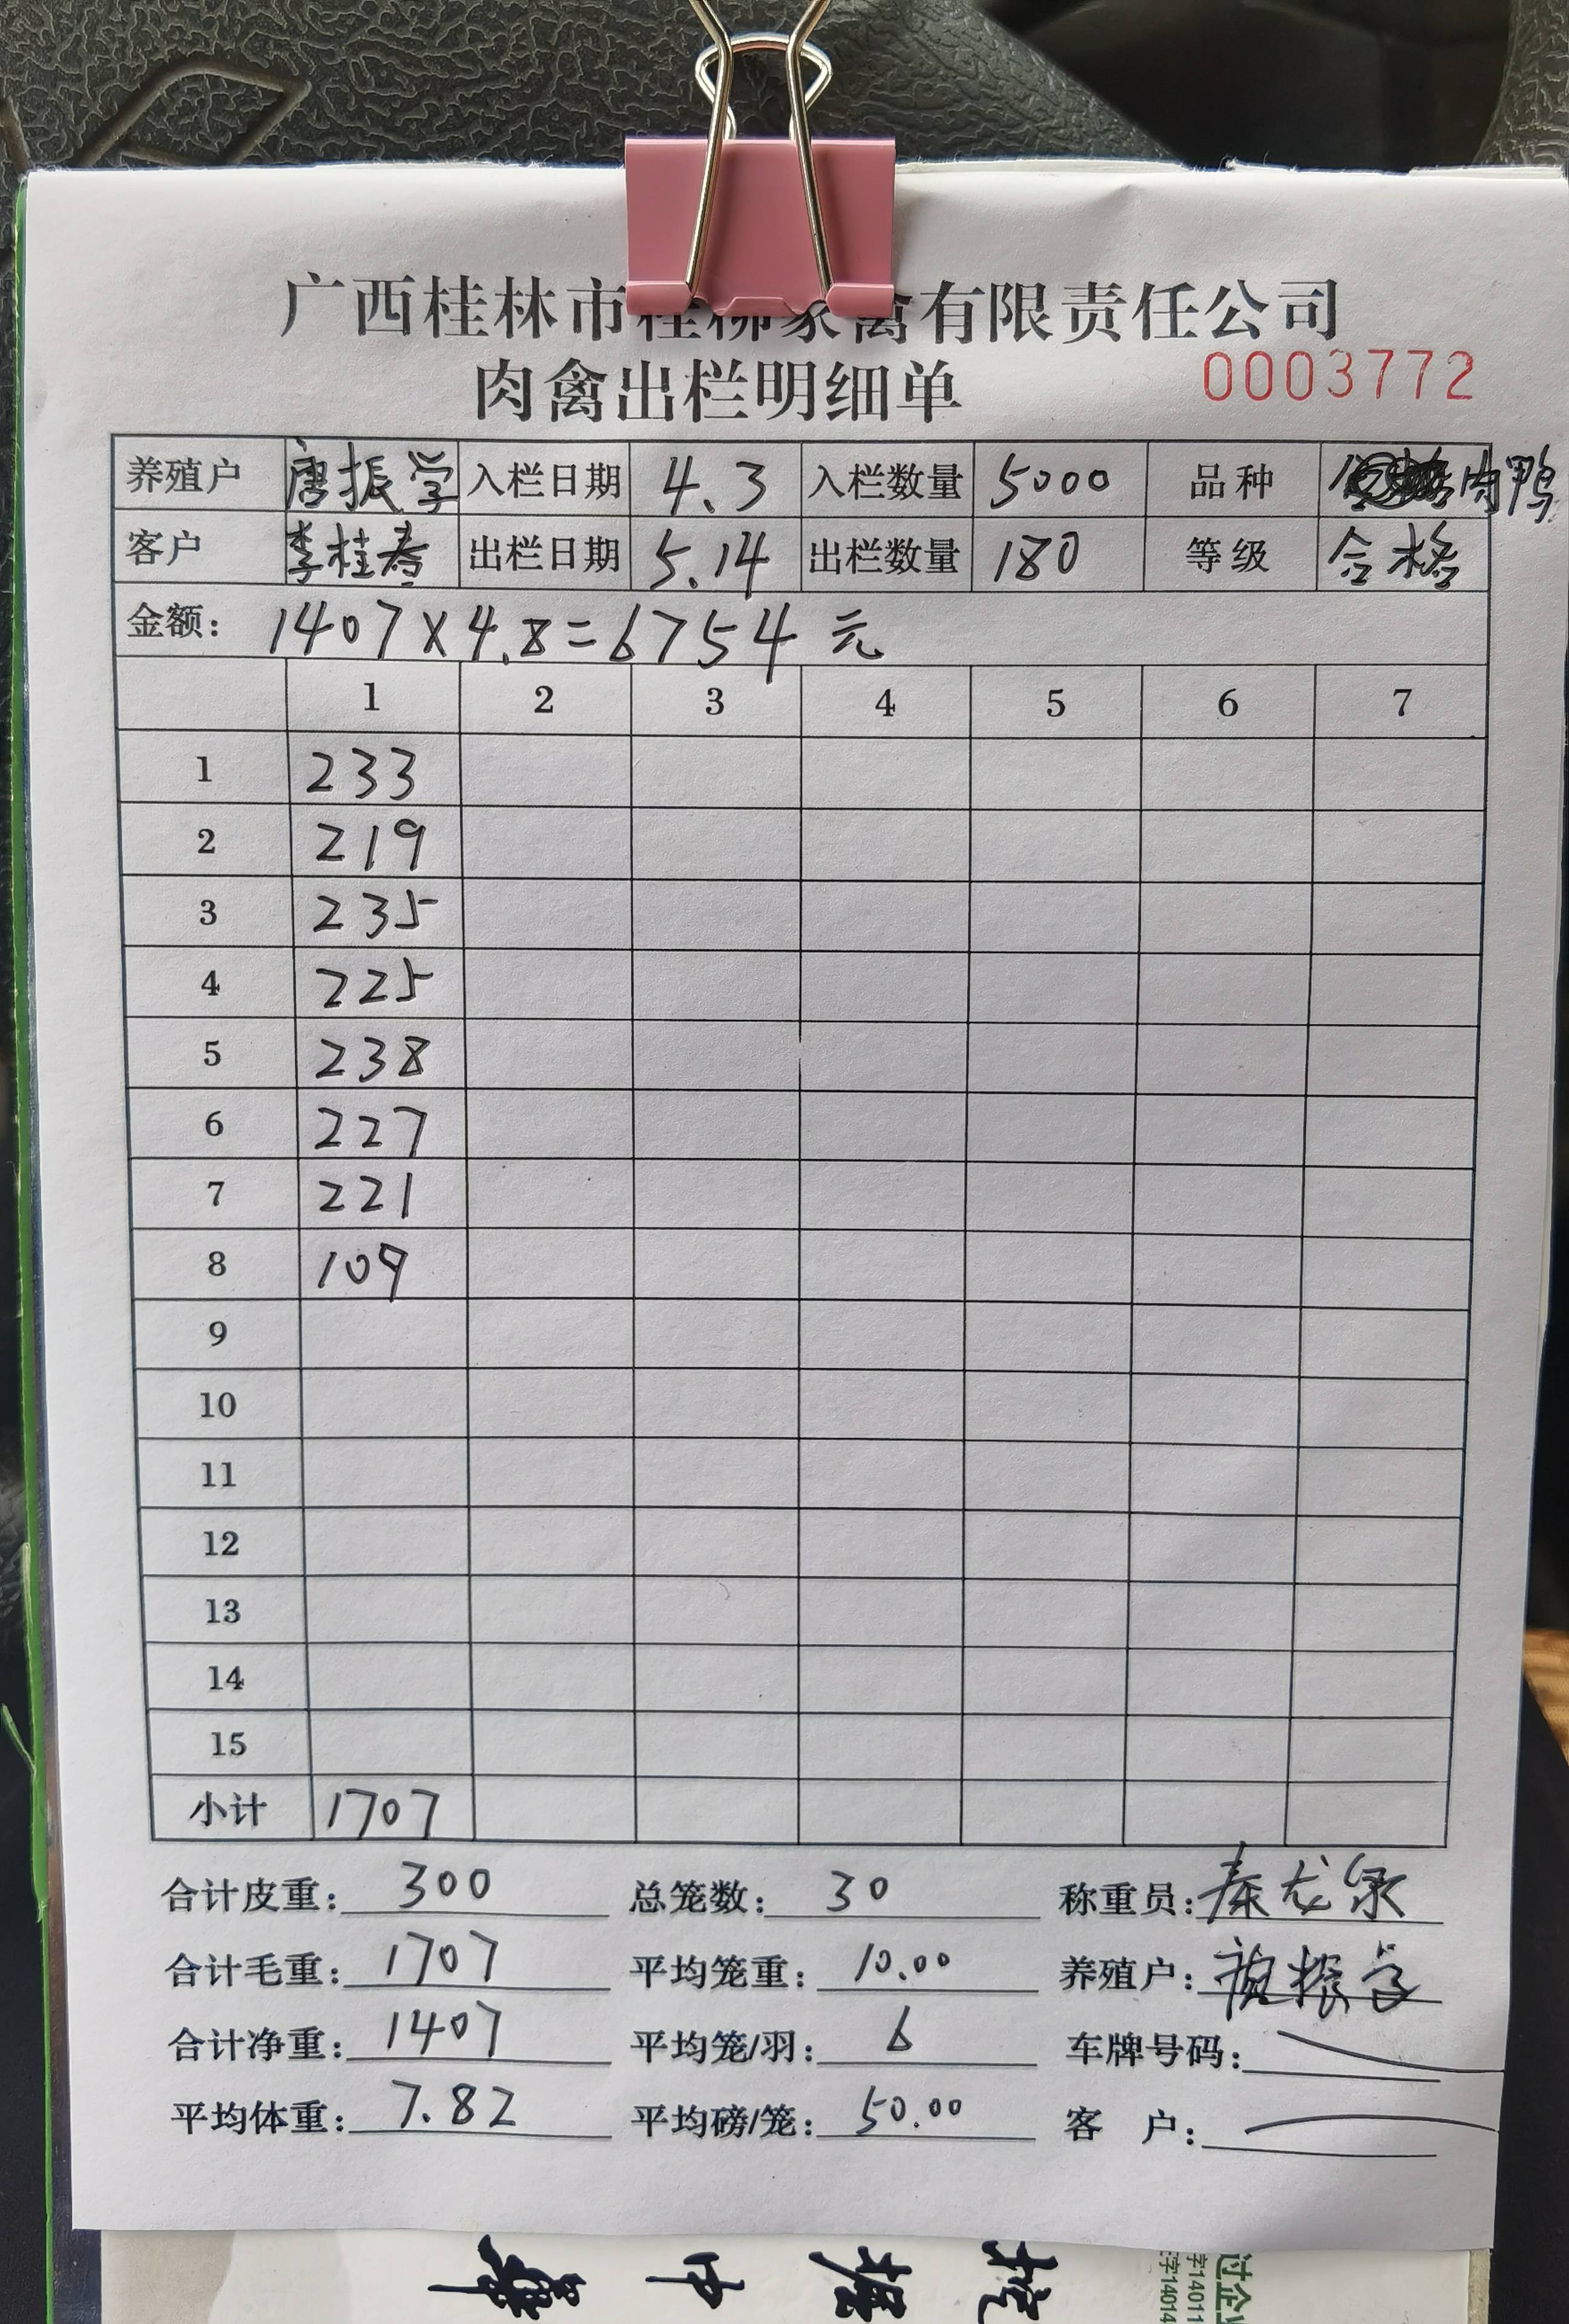 广西桂林市桂柳家禽有限责任公司
肉禽出栏明细单 0003772
养殖户 唐振学 入栏日期 4.3 入栏数量 5000 品种 肉鸭
客户 李桂春 出栏日期 5.14 出栏数量 180 等级 合格
金额: 1407×4.8=6754元
1 2 3 4 5 6 7
1 233
2 219
3 235
4 225
5 238
6 227
7 221
8 109
9
10
11
12
13
14
15
小计 1707
合计皮重: 300 总笼数: 30 称重员: 秦龙
合计毛重: 1707 平均笼重: 10.00 养殖户: 唐振学
合计净重: 1407 平均笼/羽: 6 车牌号码:
平均体重: 7.82 平均磅/笼: 50.00 客 户: